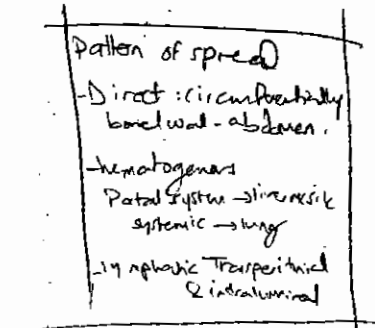 Pattern of spread
-Direct : circumferentially
bowel wal - abdomen.
-hematogenous
Portal system →liver
systemic → lung
-lymphatic Transperitonial
& intraluminal